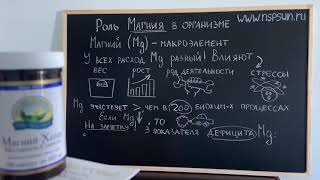 www.nspsun.ru
Роль Магния в организме
Магний (Mg) – макроэлемент
У всех расход Mg разный! Влияют
вес рост род деятельности стрессы
Mg участвует > чем в 200 биохим-х процессах
Если Mg , то
На заметку!
3 показателя дефицита Mg:
Магний Хелат